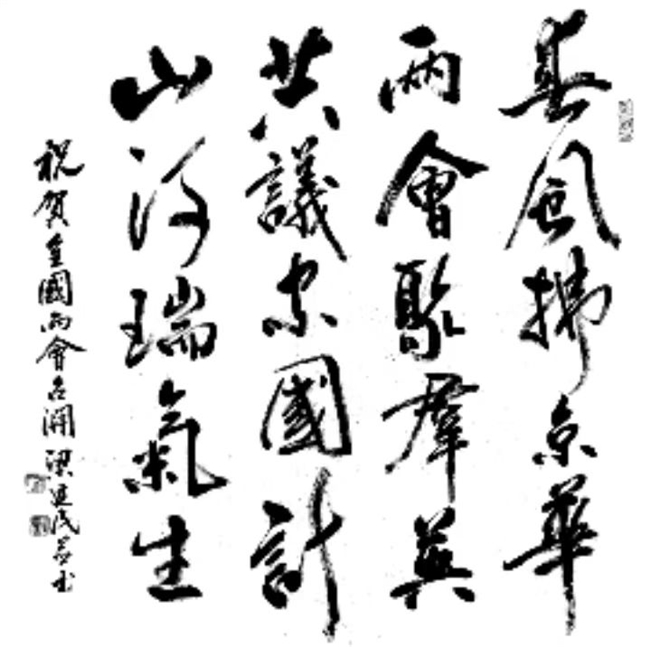 春風拂京華
兩會聚群英
共議家國計
山河瑞氣生
祝賀全國兩會召開 梁建民并书